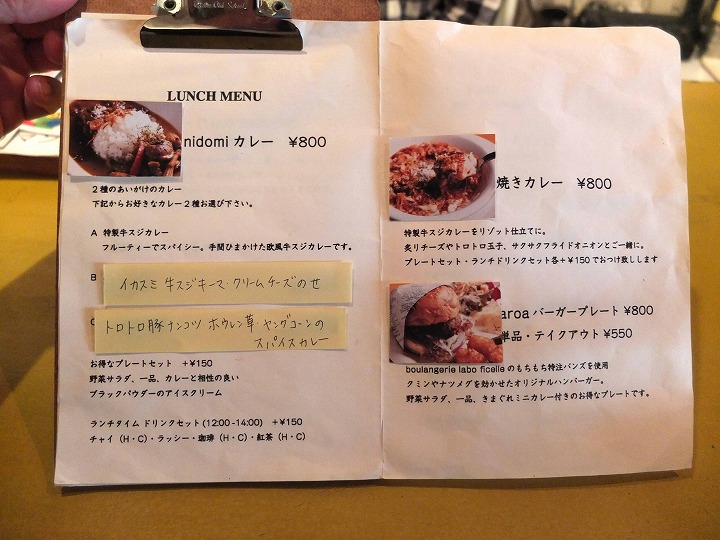 LUNCH MENU
nidomi カレー ¥800
２種のあいがけのカレー
下記からお好きなカレー２種お選び下さい。
A 特製牛スジカレー
フルーティーでスパイシー。手間ひまかけた欧風牛スジカレーです。
B
イカスミ 牛スジキーマ・クリームチーズのせ
トロトロ豚ナンコツ ホウレン草・ヤングコーンの
スパイスカレー
お得なプレートセット +¥150
野菜サラダ、一品、カレーと相性の良い
ブラックパウダーのアイスクリーム
ランチタイム ドリンクセット (12:00-14:00) +¥150
チャイ（H・C）・ラッシー・珈琲（H・C）・紅茶（H・C）
焼きカレー ¥800
特製牛スジカレーをリゾット仕立てに。
炙りチーズやトロトロ玉子、サクサクフライドオニオンとご一緒に。
プレートセット・ランチドリンクセット各+¥150でおつけ致しします
aroa バーガープレート ¥800
単品・テイクアウト ¥550
boulangerie labo ficelle のもちもち特注バンズを使用
クミンやナツメグを効かせたオリジナルハンバーガー。
野菜サラダ、一品、きまぐれミニカレー付きのお得なプレートです。